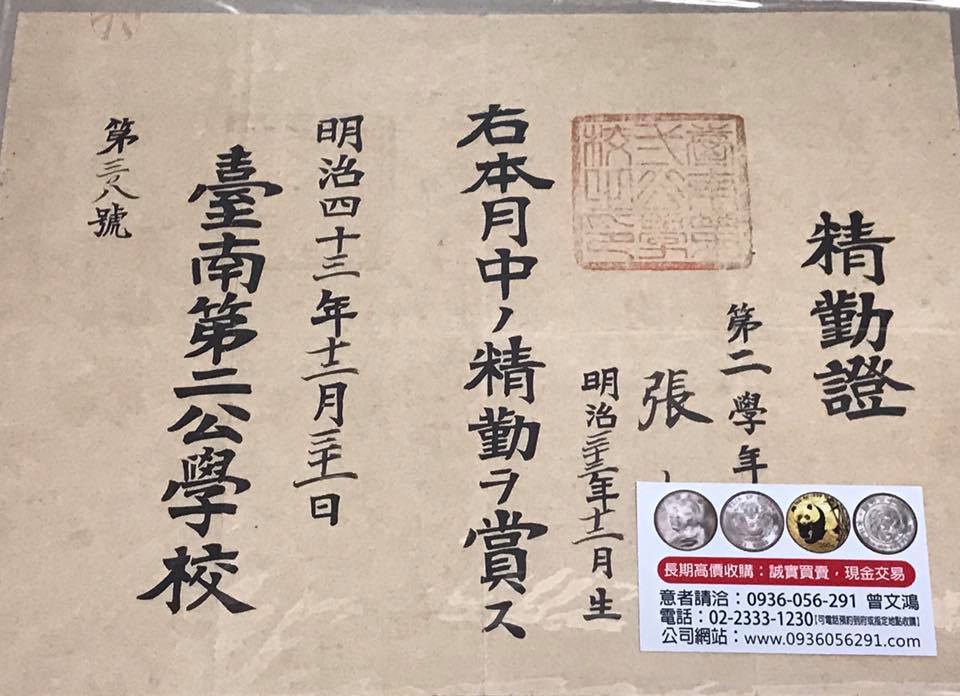 精勤證
第二學年
張
明治三十三年十二月生
臺南第
弍公學
校之印
右本月中ノ精勤ヲ賞ス
明治四十三年十二月三十一日
臺南第二公學校
第三八號
長期高價收購：誠實買賣，現金交易
意者請洽：0936-056-291 曾文鴻
電話：02-2333-1230【可電話預約到府或指定地點收購】
公司網站：www.0936056291.com